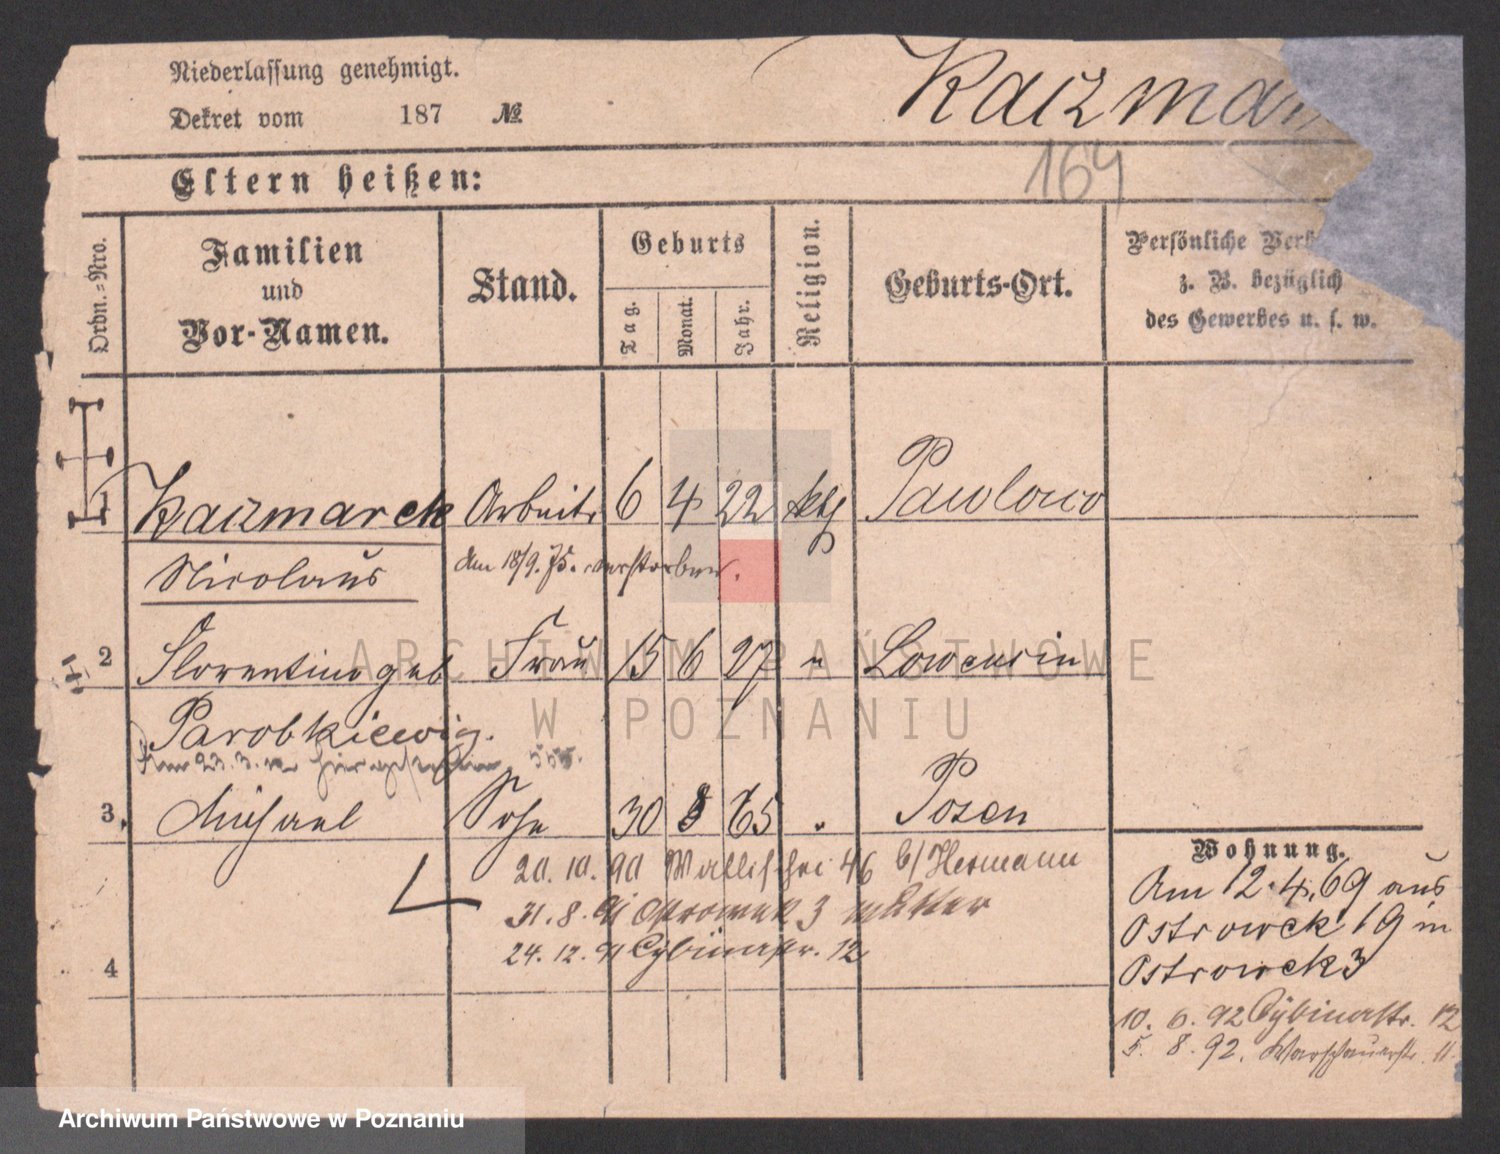 Niederlassung genehmigt.
Dekret vom 187 №
Kaczmar
164
Eltern heißen:
Ordn.=Nro.
Familien
und
Vor-Namen.
Stand.
Geburts
Tag.
Monat.
Jahr.
Religion.
Geburts-Ort.
Persönliche Verh
z. B. bezüglich
des Gewerbes u. s. w.
1 Kaczmarek Arbeitr 6 4 22 kth Pawlowo
Nicolaus am 18/9.75. verstorben.
2 Florentine geb Frau 15 6 27 " Lowencin
Parobkiewicz.
am 23.3. hier gestorben
3 Michael Sohn 30 8 65 " Posen
20. 10. 90 Wallischei 46 b/Hermann
31. 8. 91 Ostrowek 3 Mutter
24. 12. 91 Cybinastr. 12
4
Wohnung.
Am 12.4.69 aus
Ostrowek 19 in
Ostrowek 3
10. 6. 92 Cybinastr. 12
5. 8. 92. Warschauerstr. 11.
ARCHIWUM PAŃSTWOWE
W POZNANIU
Archiwum Państwowe w Poznaniu